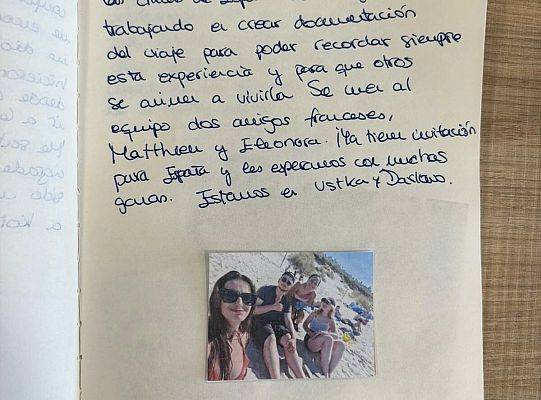 trabajando en crear documentación
del viaje para poder recordar siempre
esta experiencia y para que otros
se animen a vivirla. Se une al
equipo dos amigos franceses,
Matthieu y Eleonora. ¡Ya tienen invitación
para España y les esperamos con muchas
ganas. Estamos en Ustka y Darłowo.